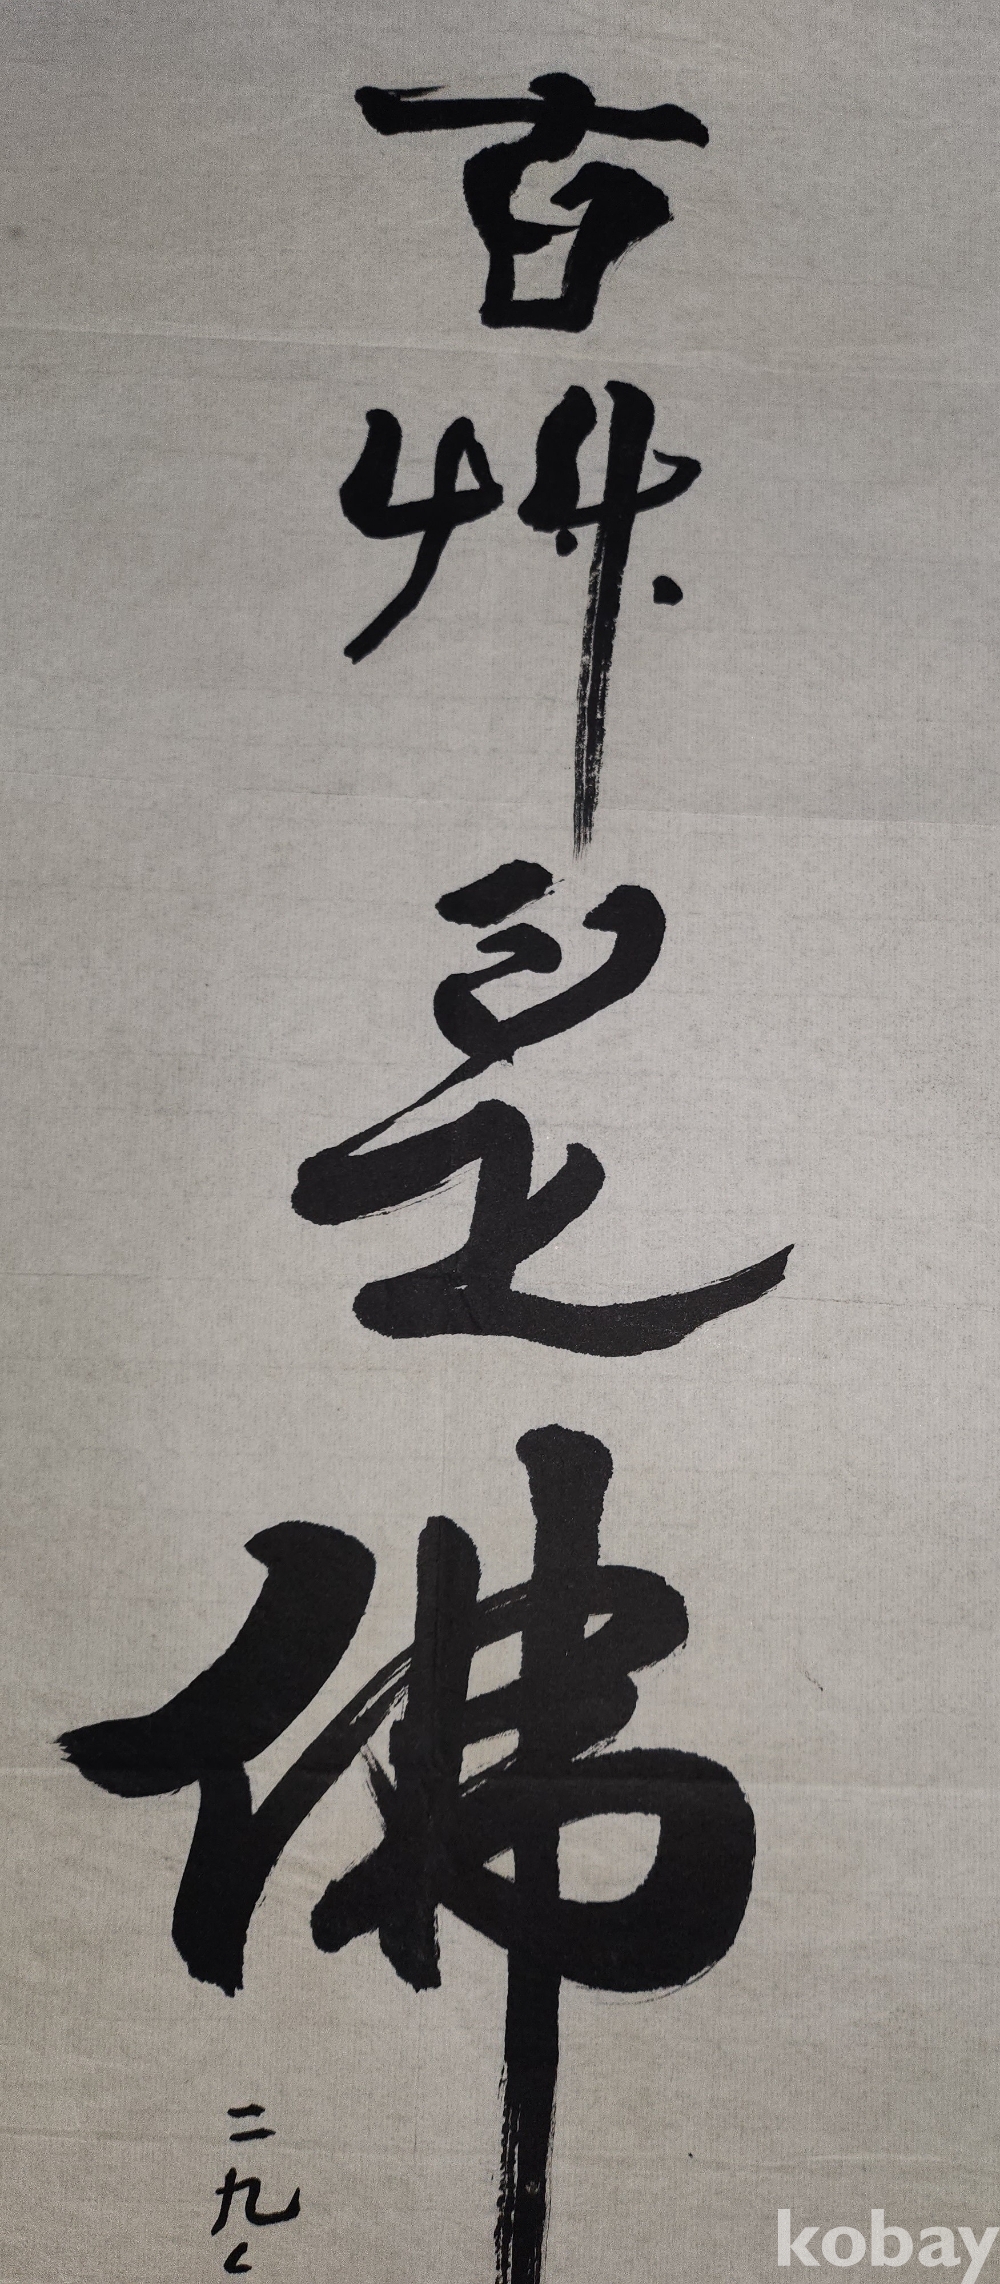 百艸是佛
二九
kobay